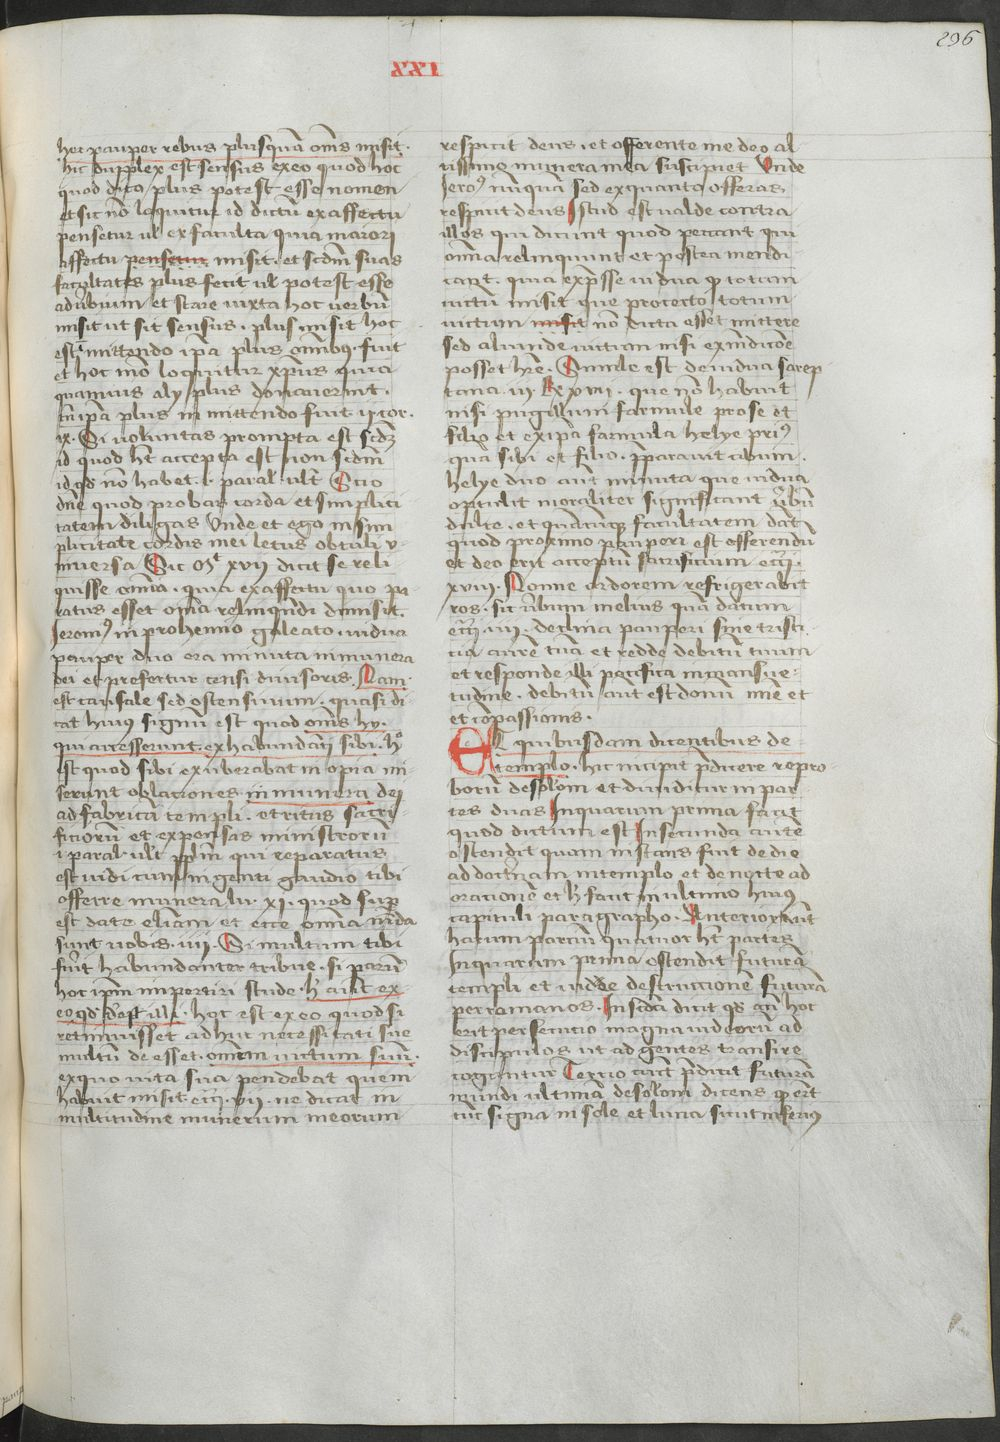 296
XXI
hec pauper rebus plusquā om̄s misit.
hic dupplex est sensus ex eo quod hoc
quod dico plus potest esse nomen
et sic nō loquitur id dictū ex affectu
pensetur ul ex faculta quia maiori
affectu pensetur misit. et scd̄m suas
facultates plus fecit ul potest esse
aduerbium et stare iuxta hoc uerbū
misit ut sit sensus. plus misit hoc
est mittendo ip̄a plus omībus fuit
et hoc mō loquitur xp̄us quia
quamuis alij plus donauerint.
tn̄ ip̄a plus in mittendo fuit ij cor.
ix. Si uoluntas prompta est scd̄m
id quod h̄t accepta est non scd̄m
id qd nō habet. i paral ult Scio
dn̄e quod probas corda et simplici
tatem diligas Unde et ego in sim
plicitate cordis mei letus obtuli v
niuersa Sic mt xvii dicit se reli
quisse om̄ia. quia ex affectu quo pa
ratus esset om̄ia relinquēdi dimisit.
Jeronimus in prohemio galeato. uidua
pauper duo era minuta in munera
dei et prefertur censi diuisoris. Nam.
est causale sed ostensiuum. quasi di
cat huius signū est quod om̄s hy.
qui accesserunt. ex habundāti sibi. ho
est quod sibi exuberabat in opia mi
serunt oblaciones. in munera dei
ad fabricā templi. et ritus sacri
ficiorū et expensas ministrorū
i paral ult pplm qui reparatus
est uidi cum ingenti gaudio tibi
offerre munera lu. xi. quod sup
est date eliām et ecce om̄ia mūda
sunt uobis. iiii. Si multum tibi
fuit habundanter tribue. si parū
hoc ip̄m impertiri stude. h aut ex
eo qd deest illi. hoc est ex eo quod si
retinuisset ad huc necessitati sue
multū de esset. omēm uictum suū.
ex quo uita sua pendebat quem
habuit misit. ecci. vii. ne dicas in
multitudine munerum meorum
respicit deus. et offerente me deo al
tissimo munera mea suscipiet Unde
Jero nūquā sed ex quanto offeras.
respicit deus Istud est ualde contra
illos qui dicunt quod peccant qui
om̄ia relinquunt et postea mendi
cant. quia exp̄sse uidua q totum
uictū misit que protecto totum
uictum misit nō dicta esset mittere
sed aliunde uictum nisi ex mēdicoe
posset h̄re. Simile est de uidua sarep
tana iij R xvii. que nō habuit
nisi pugillum farinule pro se et
filio et ex ip̄a farinula helye prius
quā sibi et filio. pparauit cibum.
helye duo aut minuta que uidua
optulit moraliter significant ubū
dulce. et quācūq facultatem dāt
quod proximo pauperi est offerendū
et deo erit acceptū sacrificium ecci.
xviii. Nonne ardorem refrigerabit
ros. sic ūbum melius quā datum
ecci iiii. declina pauperi sine tristi
cia aurē tuā et redde debitū tuum
et responde illi pacifica in mansue
tudine. debitū aut est donū mīe et
et cōpassionis.
Et quibusdam dicentibus de
templo. hic incipit p̄dicere repro
borū desolōem et diuiditur in par
tes duas In quarum prima facit
quod dictum est In secunda autē
ostendit quam instans fuit de die
ad doctnam in templo et de nocte ad
orationē et h facit in ultimo huius
capituli paragrapho. Anterior aut
harum parciū quatuor h̄t partes
In quarum prima ostendit futurā
templi et iudee destructionē futurā
per romanos. In scd̄a dicit qd an̄ hoc
erit persecutio magna iudeorū ad
discipulos ut ad gentes transire
cogantur Tercio aut p̄dicit futurā
mundi ultimā desolōem dicens q erit
tūc signa in sole et luna sicut inferius